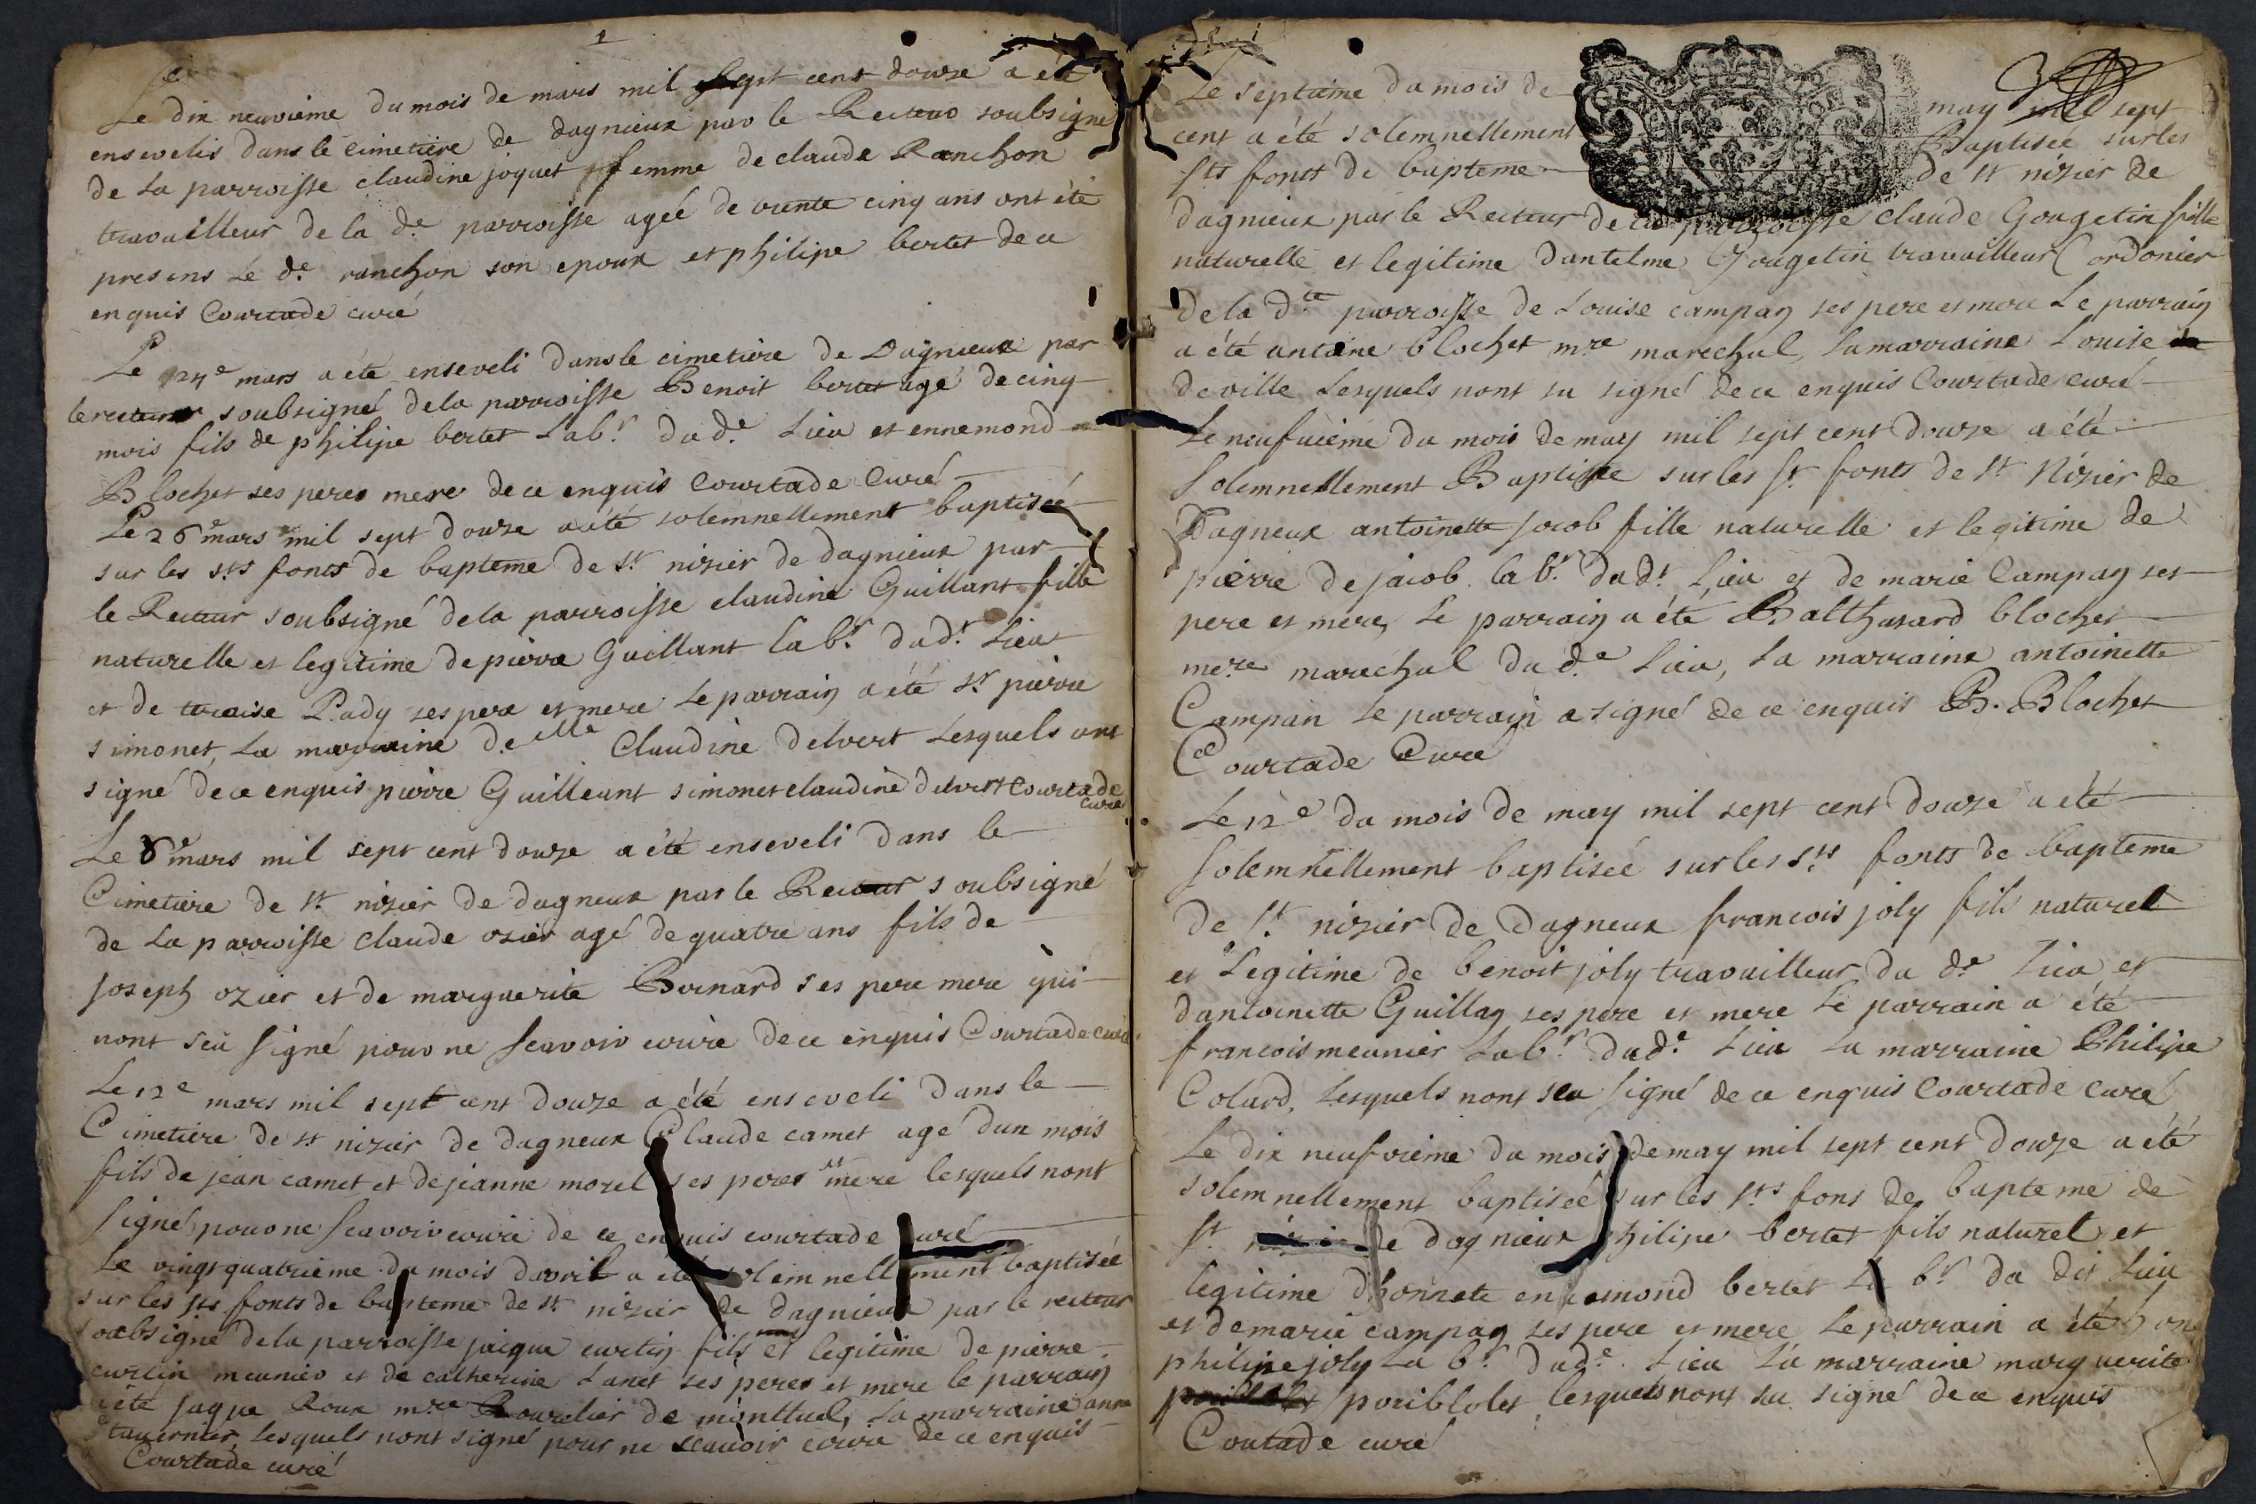 1
Le dix neuvieme du mois de mars mil sept cent douze a été
ensevelis dans le cimetiere de dagnieux par le Recteur soubsigné
de La parroisse claudine joquet femme de claude Ranchon
travailleur de la de parroisse agéé de trente cinq ans ont été
presens Le de. ranchon son epoux et philipe bertet de ce
enquis Courtade curé
Le 24e mars a été enseveli dans le cimetiere de Dagnieux par
le recteur soubsigné dela parroisse Benoit bertet agé de cinq
mois fils de philipe bertet Labr. du de. Lieu et ennemond
Blochet ses peres mere de ce enquis Courtade Curé
Le 26e mars mil sept douze a été solemnellement baptiséé
sur les sts fonts de bapteme de st nizier de dagnieux par
le Recteur soubsigné dela parroisse claudine Guillant fille
naturelle et legitime de pierre Guillant labr. du dt. Lieu
et de Pady ses pere et mere Le parrain a été sr pierre
simonet, La marraine delle Claudine delvert Lesquels ont
signé de ce enquis pierre Guilleant simonet claudine delvert Courtade
curé
Le 8e mars mil sept cent douze a été enseveli dans le
Cimetiere de st nizier de dagneux par le Recteur soubsigné
de La parroisse Claude ozier agé de quatre ans fils de
Joseph ozier et de marguerite Bernard ses pere mere qui
nont seu signé pour ne scavoir ecrire de ce enquis Courtade curé
Le 12e mars mil sept cent douze a été enseveli dans le
Cimetiere de st nizier de dagneux Claude camet agé dun mois
fils de jean camet et de jeanne morel ses peres et mere lesquels nont
signé pour ne scavoir ecrire de ce enquis courtade curé
Le vingt quatrieme du mois davril a été solemnellement baptiséé
sur les sts fonts de bapteme de st nizier de dagnieux par le recteur
soubsigné dela parroisse jaique curtin fils et legitime de pierre
curtin meunier et de catherine Lanet ses peres et mere le parrain
a été jaque Roux mre Bourelier de montluel, La marraine anne
tavernier, Lesquels nont signé pour ne scavoir ecrire de ce enquis
Courtade curé
Le septieme du mois de may mil sept
cent a été solemnellement Baptiseé sur les
sts fonts de bapteme de st nizier de
dagnieux par le Recteur de la parroisse claude Gougetin fille
naturelle et legitime dantelme Gougetin travailleur Cordonier
de la dte parroisse de Louise campan ses pere et mere Le parrain
a été antoine blochet mre marechal, La marraine Louise
deville Lesquels nont su signé de ce enquis Courtade curé
Le neufuieme du mois de may mil sept cent douze a été
Solemnellement Baptisee sur les st fonts de st Nizier de
Dagneux antoinette Jocob fille naturelle et legitime de
pierre de jaiob labr. du dt Lieu et de marie Campan ses
pere et mere, Le parrain a été Balthasard blochet
mere marechal du de Lieu, La marraine antoinette
Campan Le parrain a signé de ce enquis B. Blochet
Courtade Curé
Le 12e du mois de may mil sept cent douze a été
solemnellement baptiseé sur les sts fonts de bapteme
de st. nizier de dagneux francois joly fils naturel
et Legitime de benoit joly travailleur du de Lieu et
dantoinette Guillan ses pere et mere Le parrain a été
francois meunier Labr. du de. Lieu La marraine Philipe
Colard, Lesquels nont seu signé de ce enquis Courtade curé
Le dix neufvieme du mois de may mil sept cent douze a été
solemnellement baptiseé sur les sts fons de bapteme de
st nizier de dagnieux philipe bertet fils naturel et
legitime dhonnete ennemond bertet La br du dit Lieu
et de marie campan ses pere et mere Le parrain a été hon
philipe joly La br. du de. Lieu La marraine marguerite
poribloles lesquels nont su signé de ce enquis
Coutade curé